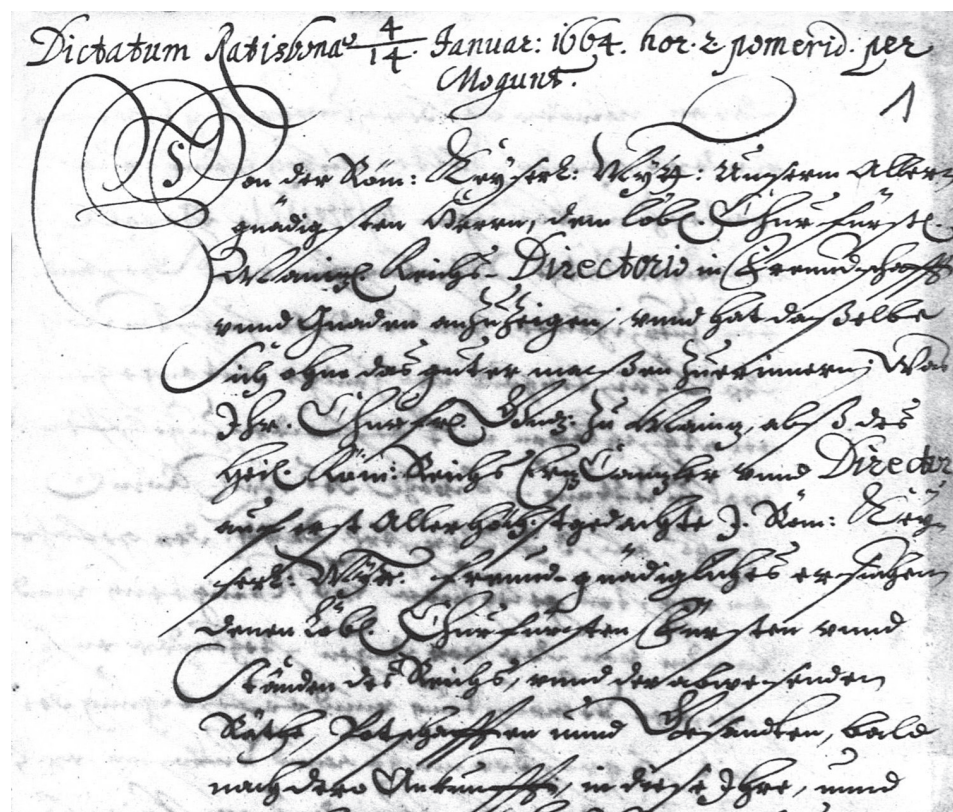 Dictatum Ratisbonae 4/14. Januar: 1664. hor. 2 pomerid. per
Mogunt.
1
Von der Röm: Keyserl: Maytt: Unserm Aller
gnädigsten Herrn, dem löbl. Churfürstl.
Maintzl. Reichs-Directorio in Freundschafft
vnnd Gnaden anzuzeigen; vnnd hat dasselbe
Sich ohne das guter massen zuerinnern; Was
Ihr. Churfrl. Gn: zu Maintz, alß des
Heil. Röm: Reichs Ertz Cantzler vnnd Director
auf erst Allerhöchstgedachte J. Röm: Key-
serl: Maytt. freund-gnädigliches ersuchen
denen Löbl. Churfürsten Fürsten vnnd
Ständen des Reichs, vnnd der abwesenden
Räthe, Potschafften vnnd Gesandten, bald
nach dero Ankunfft, in diese Ihre, vnnd